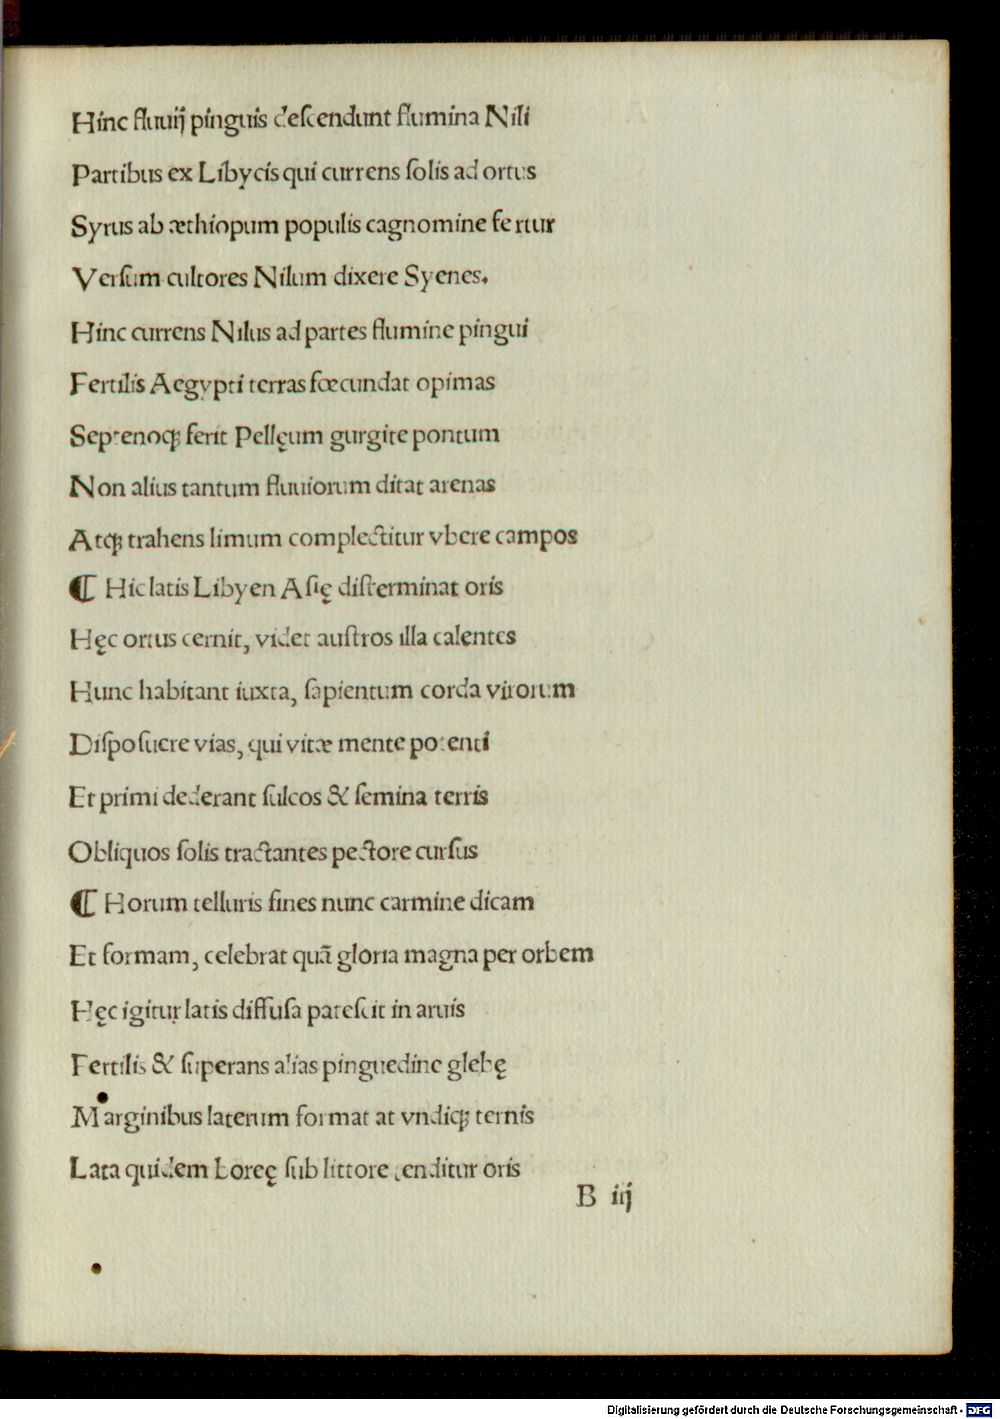 Hinc fluuij pinguis descendunt flumina Nili
Partibus ex Libycis qui currens solis ad ortus
Syrus ab æthiopum populis cagnomine fertur
Versum cultores Nilum dixere Syenes.
Hinc currens Nilus ad partes flumine pingui
Fertilis Aegypti terras fœcundat opimas
Septenoq; ferit Pellęum gurgite pontum
Non alius tantum fluuiorum ditat arenas
Atq; trahens limum complectitur vbere campos
¶ Hic latis Libyen Asię disterminat oris
Hęc ortus cernit, videt austros illa calentes
Hunc habitant iuxta, sapientum corda virorum
Disposuere vias, qui vitæ mente potenti
Et primi dederant sulcos & semina terris
Obliquos solis tractantes pectore cursus
¶ Horum telluris fines nunc carmine dicam
Et formam, celebrat quā gloria magna per orbem
Hęc igitur latis diffusa patescit in aruis
Fertilis & superans alias pinguedine glebę
Marginibus laterum format at vndiq; ternis
Lata quidem Boreę sub littore tenditur oris
B iij
Digitalisierung gefördert durch die Deutsche Forschungsgemeinschaft - DFG